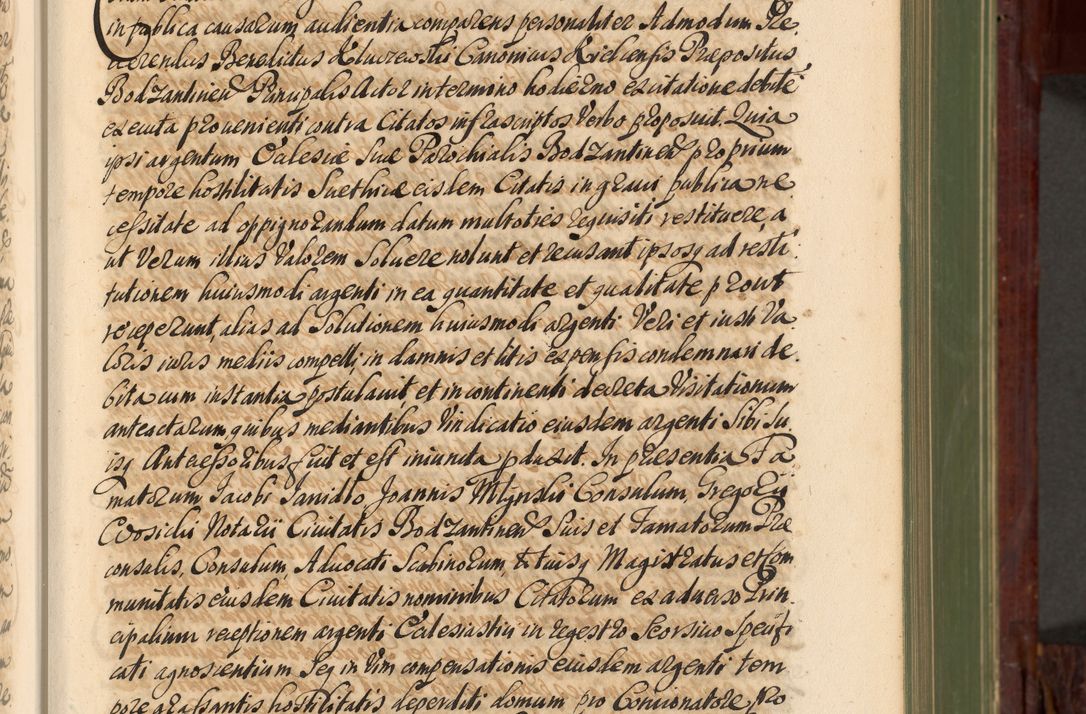 in publica causarum audientia comparens personaliter Admodum Re
verendus Benedictus Kluczewski Canonicus Kielensis Præpositus
Bodzantinen Principalis Actor in termino hodierno ex citatione debite
executa provenienti contra Citatos infrascriptos Verbo proposuit. Quia
ipsi argentum Ecclesiæ Suæ Parochialis Bodzantinen proprium
tempore hostilitatis Suethicæ eisdem Citatis in gravi publica ne
cessitate ad oppignorandum datum multoties requisiti restituere, a
ut Verum illius Valorem Solvere nolunt et recusant ipsosq ad resti
tutionem huiusmodi argenti in ea quantitate et qualitate prout
receperunt, alias ad Solutionem huiusmodi argenti Veri et iusti Va
loris iuris mediis compelli, in damnis et litis expensis condemnari de
bita cum instantia postulavit et in continenti decreta Visitationum
anteactarum, quibus mediantibus Vindicatio eiusdem argenti Sibi Su
isq Antecessoribus fuit et est iniuncta produxit. In præsentia Fa
matorum Jacobi Joannis Consulum, Gregorii
Notarii Civitatis Bodzantinen Suis et Famatorum Præ
consulis, Consulum, Advocati Scabinorum, totiusq Magistratus et Com
munitatis eiusdem Civitatis nominibus Citatorum ex adverso Prin
cipalium receptionem argenti Ecclesiastici in regestro Seorsivo Specifi
cati agnoscentium Seq in Vim compensationis eiusdem argenti tem
pore grassantis hostilitatis deperditi domum pro Concionatore, Pro